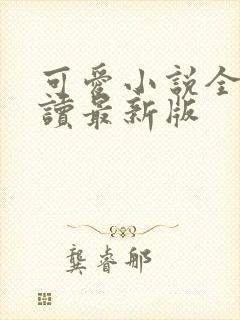 可愛小說全
讀最新版
龔睿那